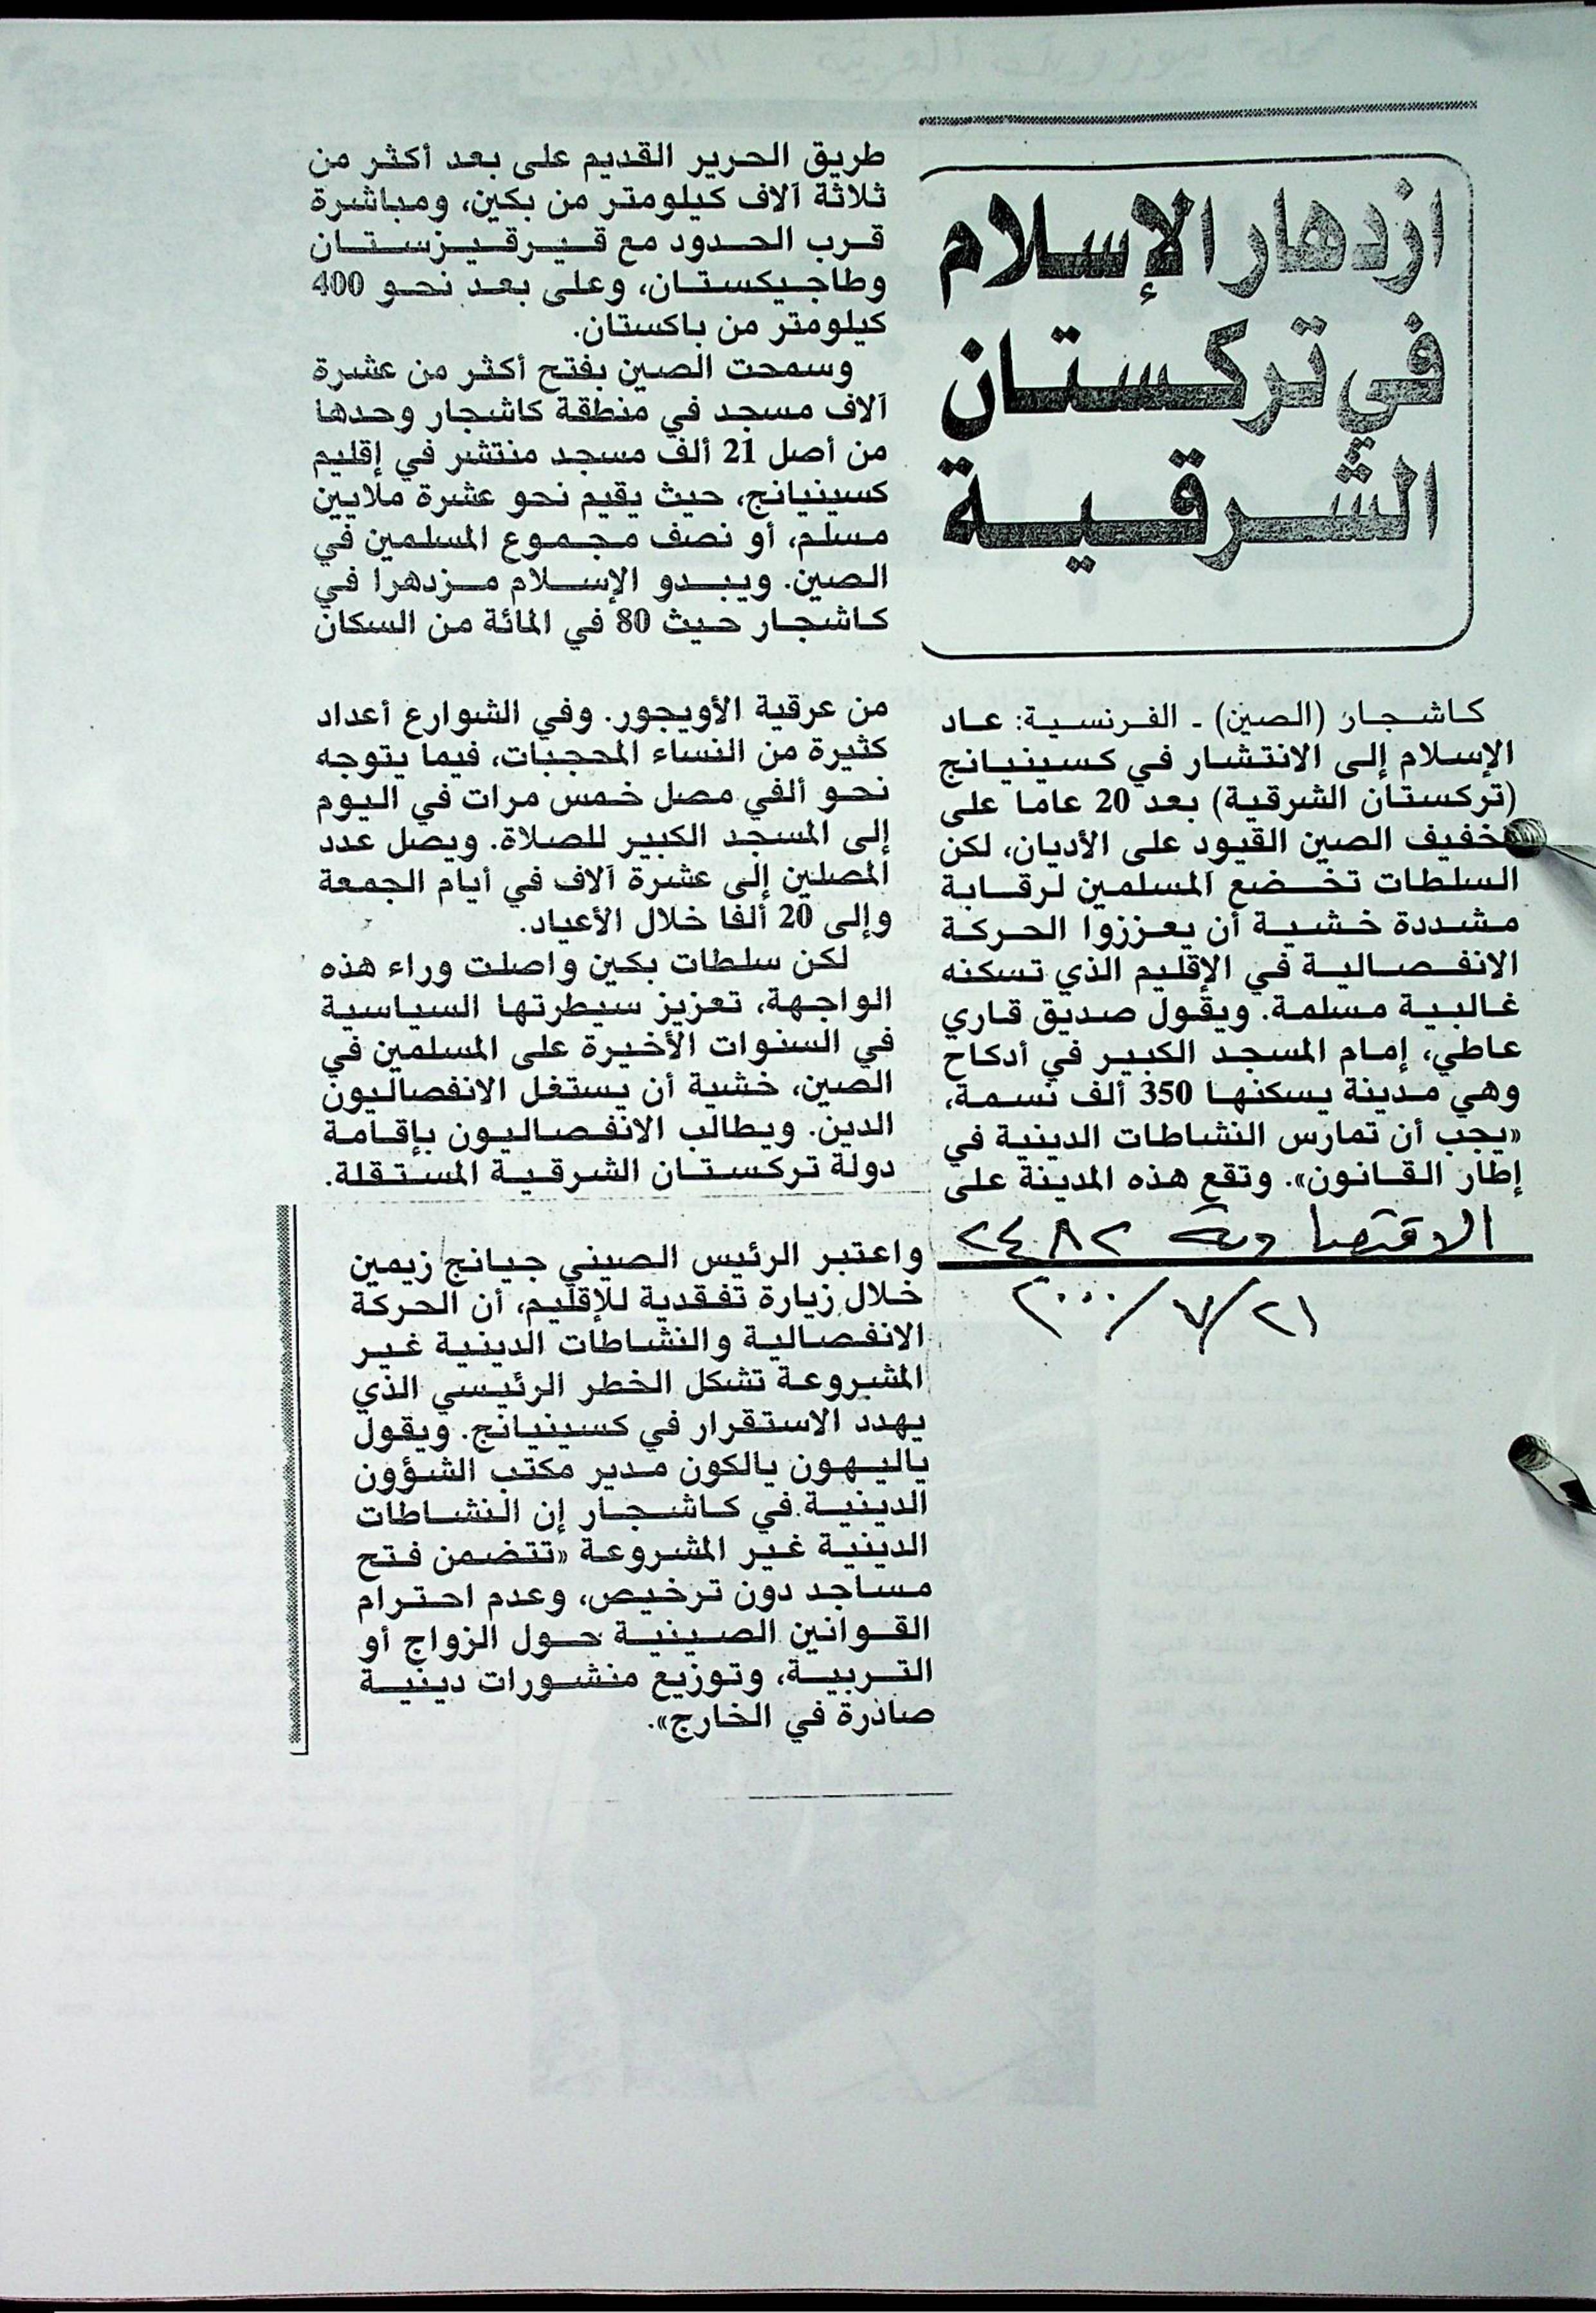 ازدهار الإسلام
في تركستان
الشرقية
كاشجار (الصين) - الفرنسية: عاد
الإسلام إلى الانتشار في كسينيانج
(تركستان الشرقية) بعد 20 عاما على
تخفيف الصين القيود على الأديان، لكن
السلطات تخضع المسلمين لرقابة
مشددة خشية أن يعززوا الحركة
الانفصالية في الإقليم الذي تسكنه
غالبية مسلمة. ويقول صديق قاري
عاطي، إمام المسجد الكبير في أدكاح
وهي مدينة يسكنها 350 ألف نسمة،
«يجب أن تمارس النشاطات الدينية في
إطار القانون». وتقع هذه المدينة على
الاقتصادية ٢٤٨٢
٢٠٠٠/٧/٢١
طريق الحرير القديم على بعد أكثر من
ثلاثة آلاف كيلومتر من بكين، ومباشرة
قرب الحدود مع قيرقيزستان
وطاجيكستان، وعلى بعد نحو 400
كيلومتر من باكستان.
وسمحت الصين بفتح أكثر من عشرة
آلاف مسجد في منطقة كاشجار وحدها
من أصل 21 ألف مسجد منتشر في إقليم
كسينيانج، حيث يقيم نحو عشرة ملايين
مسلم، أو نصف مجموع المسلمين في
الصين. ويبدو الإسلام مزدهرا في
كاشجار حيث 80 في المائة من السكان
من عرقية الأويجور. وفي الشوارع أعداد
كثيرة من النساء المحجبات، فيما يتوجه
نحو ألفي مصل خمس مرات في اليوم
إلى المسجد الكبير للصلاة. ويصل عدد
المصلين إلى عشرة آلاف في أيام الجمعة
وإلى 20 ألفا خلال الأعياد.
لكن سلطات بكين واصلت وراء هذه
الواجهة، تعزيز سيطرتها السياسية
في السنوات الأخيرة على المسلمين في
الصين، خشية أن يستغل الانفصاليون
الدين. ويطالب الانفصاليون بإقامة
دولة تركستان الشرقية المستقلة.
واعتبر الرئيس الصيني جيانج زيمين
خلال زيارة تفقدية للإقليم، أن الحركة
الانفصالية والنشاطات الدينية غير
المشروعة تشكل الخطر الرئيسي الذي
يهدد الاستقرار في كسينيانج. ويقول
ياليهون يالكون مدير مكتب الشؤون
الدينية في كاشجار إن النشاطات
الدينية غير المشروعة «تتضمن فتح
مساجد دون ترخيص، وعدم احترام
القوانين الصينية حول الزواج أو
التربية، وتوزيع منشورات دينية
صادرة في الخارج».